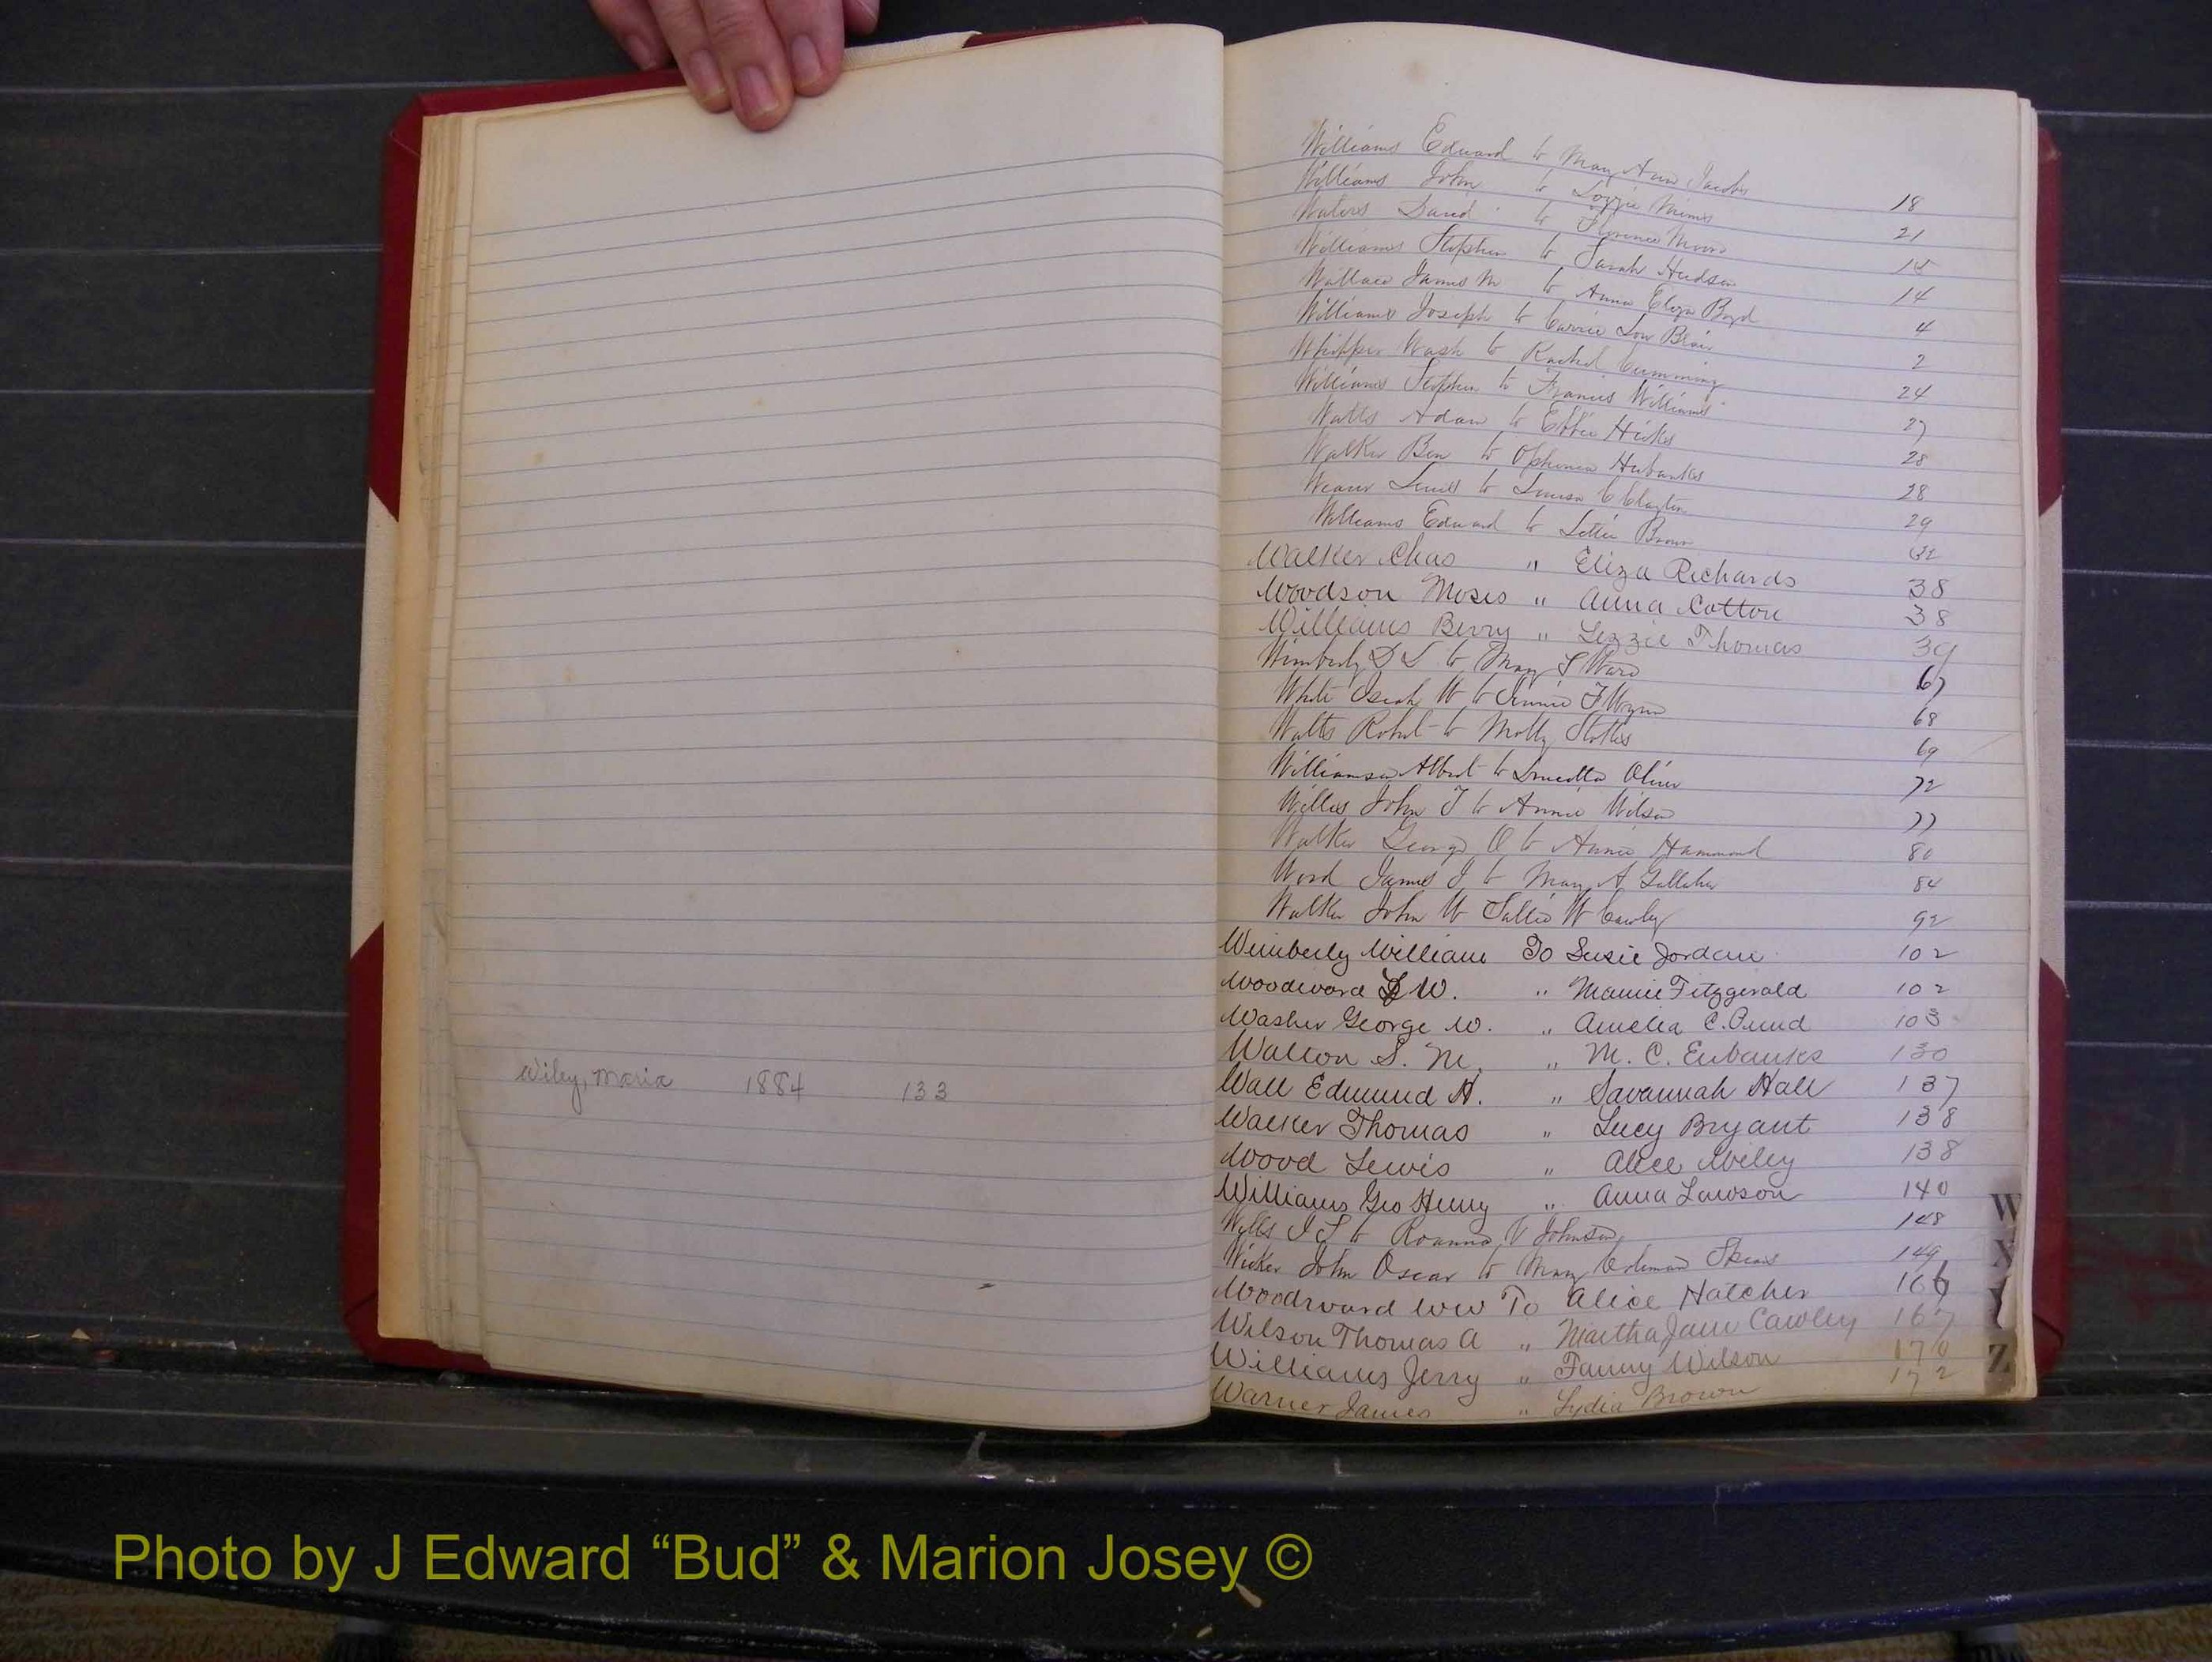 Wiley, Maria 1884 133
Williams Edward to Mary Ann Jacobs 18
Williams John to Lizzie Mims 21
Waters David to Florence Moore 15
Williams Stephen to Sarah Hudson 14
Wallace James M to Anna Eliza Boyd 4
Williams Joseph to Carrie Lou Blair 2
Whipper Wash to Rachel Cumming 24
Williams Stephen to Francis Williams 27
Watts Adam to Effie Hicks 28
Walker Ben to Hubanks 28
Weaver Lewis to Louisa C Clayton 29
Williams Edward to Lettie Brown 32
Walker Chas " Eliza Richards 38
Woodson Moses " Anna Cotton 38
Williams Berry " Lizzie Thomas 39
Wimberly D L to Mary S Ward 67
White W to Annie F Wynn 68
Watts Robert to Molly 69
Williamson Albert to Oliver 72
Willis John T to Annie Wilson 77
Walker George O to Annie Hammond 80
Word James J to Mary A Gallaher 84
Walker John W Sallie W Cawley 92
Wimberly William To Susie Jordan 102
Woodward W. " Mamie Fitzgerald 102
Washer George W. " Amelia C. Pund 103
Walton S. M. " M. C. Eubanks 130
Wall Edmund H. " Savannah Hall 137
Walker Thomas " Lucy Bryant 138
Wood Lewis " Alice Wiley 138
Williams Geo Henry " Anna Lawson 140
Wells I S to Roanna V Johnson 148
Wicker John Oscar to Mary Coleman Spears 149
Woodward WW To Alice Hatcher 166
Wilson Thomas A " Martha Jane Cawley 167
Williams Jerry " Fanny Wilson 170
Warner James " Lydia Brown 172
W
X
Y
Z
Photo by J Edward “Bud” & Marion Josey ©